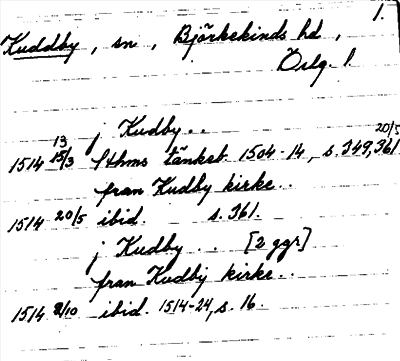 1.
Kuddby, sn, Björkekinds hd,
Östg. l.
j Kudby..
1514 13/3 15/3 Sthms tänkeb. 1504-14, s. 349, 361 20/5
från Kudby kirke..
1514 20/5 ibid. s. 361.
j Kudby.. [2 ggr]
från Kudby kirke..
1514 2/10 ibid. 1514-24, s. 16